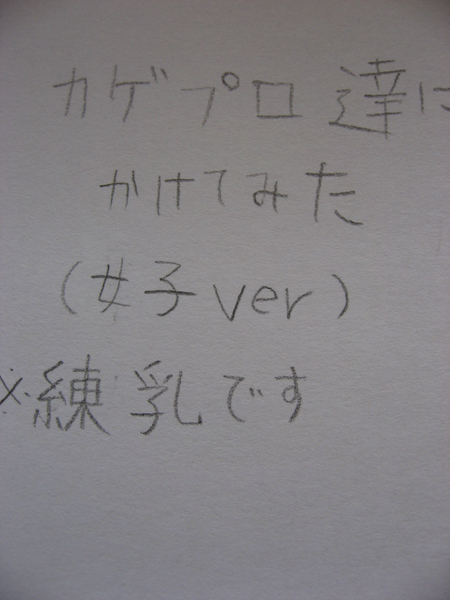 カゲプロ達に
かけてみた
(女子ver)
※練乳です